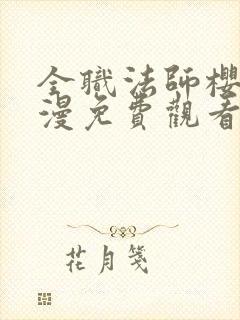 全職法師櫻
漫免費觀看
花月箋